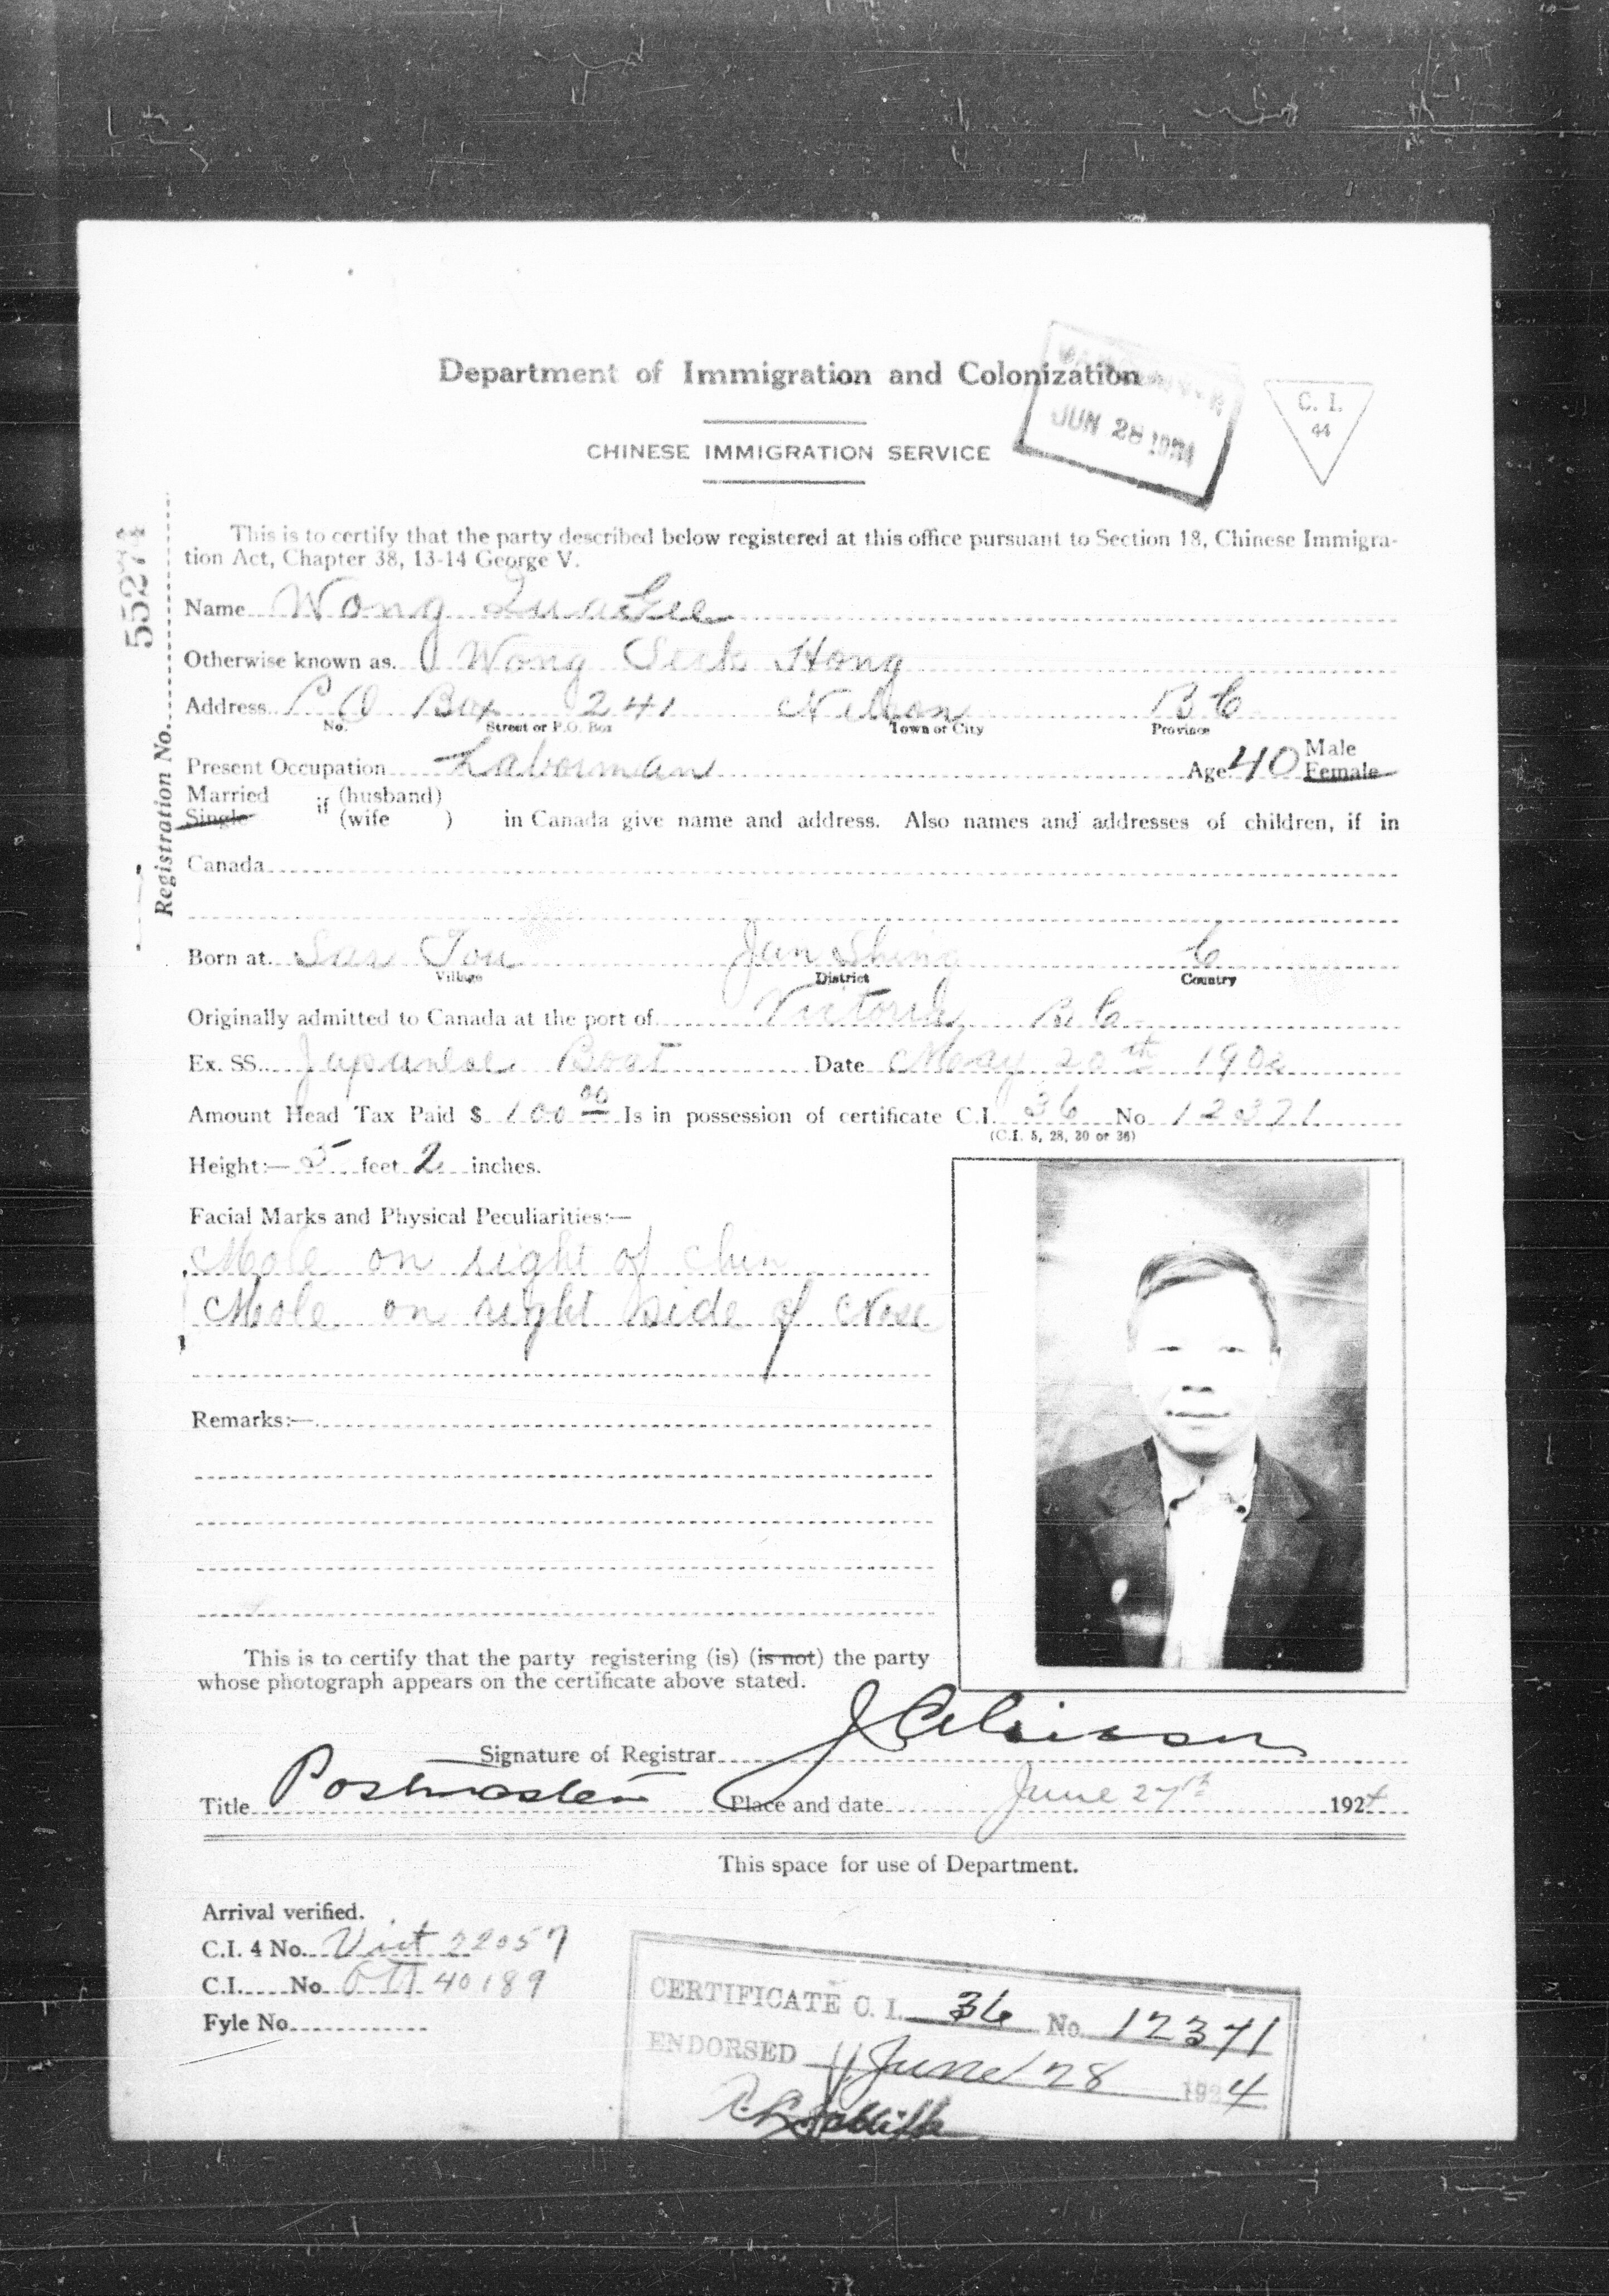 Department of Immigration and Colonization
CHINESE IMMIGRATION SERVICE
VANCOUVER
JUN 28 1924
C. I.
44
Registration No. 55274
This is to certify that the party described below registered at this office pursuant to Section 18, Chinese Immigra-
tion Act, Chapter 38, 13-14 George V.
Name Wong Quan Gee
Otherwise known as. Wong Seck Hong
Address P O Box 241 Nelson B C
No. Street or P.O. Box Town or City Province
Present Occupation Laborman Age 40 Male Female
Married
Single
if (husband)
(wife )
in Canada give name and address. Also names and addresses of children, if in
Canada
Born at Sar Tou Jun Shing C
Village District Country
Originally admitted to Canada at the port of Victoria B C
Ex. SS. Japanese Boat Date May 20th 1902
Amount Head Tax Paid $ 100.00 Is in possession of certificate C.I. 36 No 12371
(C.I. 5, 28, 30 or 36)
Height:— 5 feet 2 inches.
Facial Marks and Physical Peculiarities:—
Mole on right of chin
Mole on right side of Nose
Remarks:—
This is to certify that the party registering (is) (is not) the party
whose photograph appears on the certificate above stated.
Signature of Registrar
Title Postmaster Place and date June 27th 1924
This space for use of Department.
Arrival verified.
C.I. 4 No. Vict 22057
C.I. No. Ott 40189
Fyle No.
CERTIFICATE C. I. 36 No 12371
ENDORSED June 28 1924